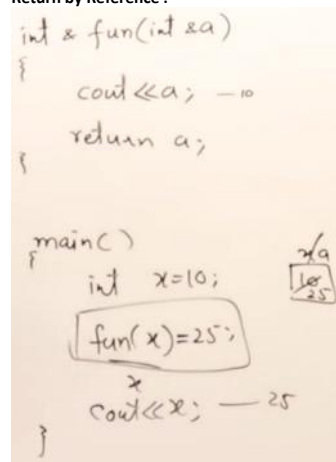 Return by Reference :
int & fun(int &a)
{
cout<<a; — 10
return a;
}
main()
{
int x=10;
x/a
10
25
fun(x)=25;
x
cout<<x; — 25
}